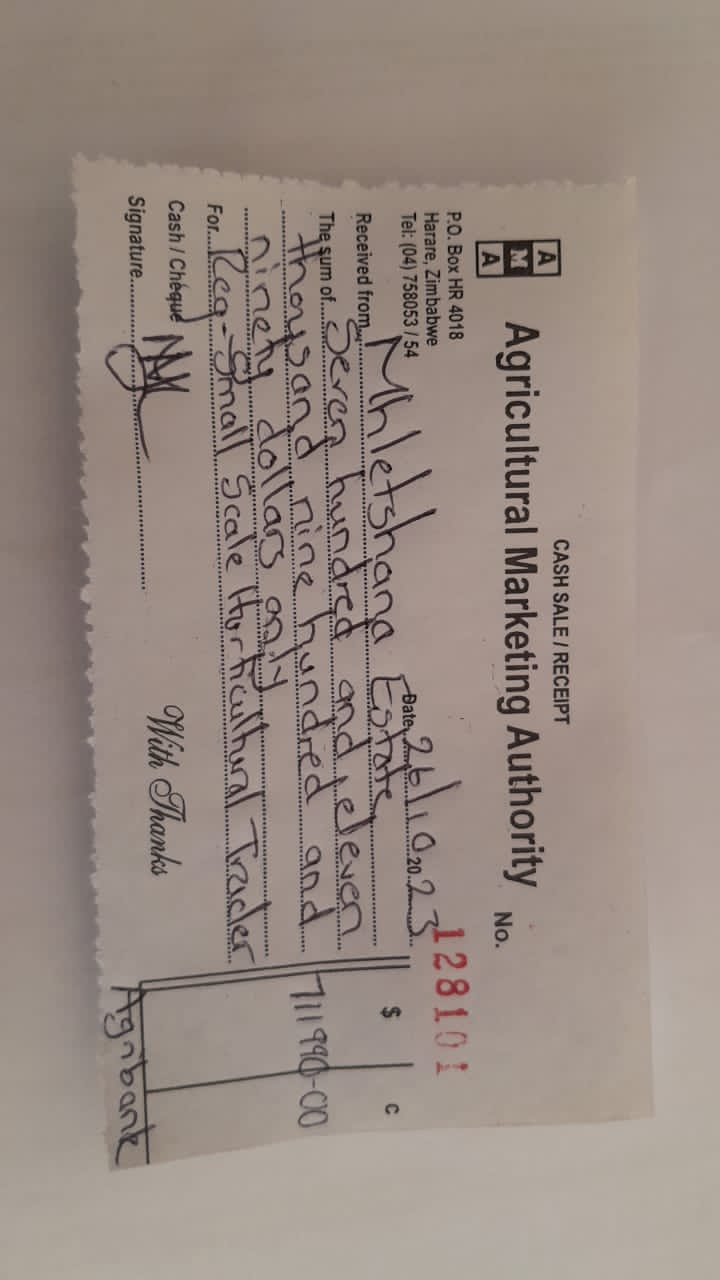 CASH SALE / RECEIPT
A
M
A
Agricultural Marketing Authority No. 128101
P.O. Box HR 4018
Harare, Zimbabwe
Tel: (04) 758053 / 54
Date 26/10 2023
Received from Mhletshana Estate
The sum of Seven hundred and eleven
thousand nine hundred and
ninety dollars only
For Reg-Small Scale Horticultural Trader
$ c
711990-00
Cash / Cheque
Signature
With Thanks
Agribank